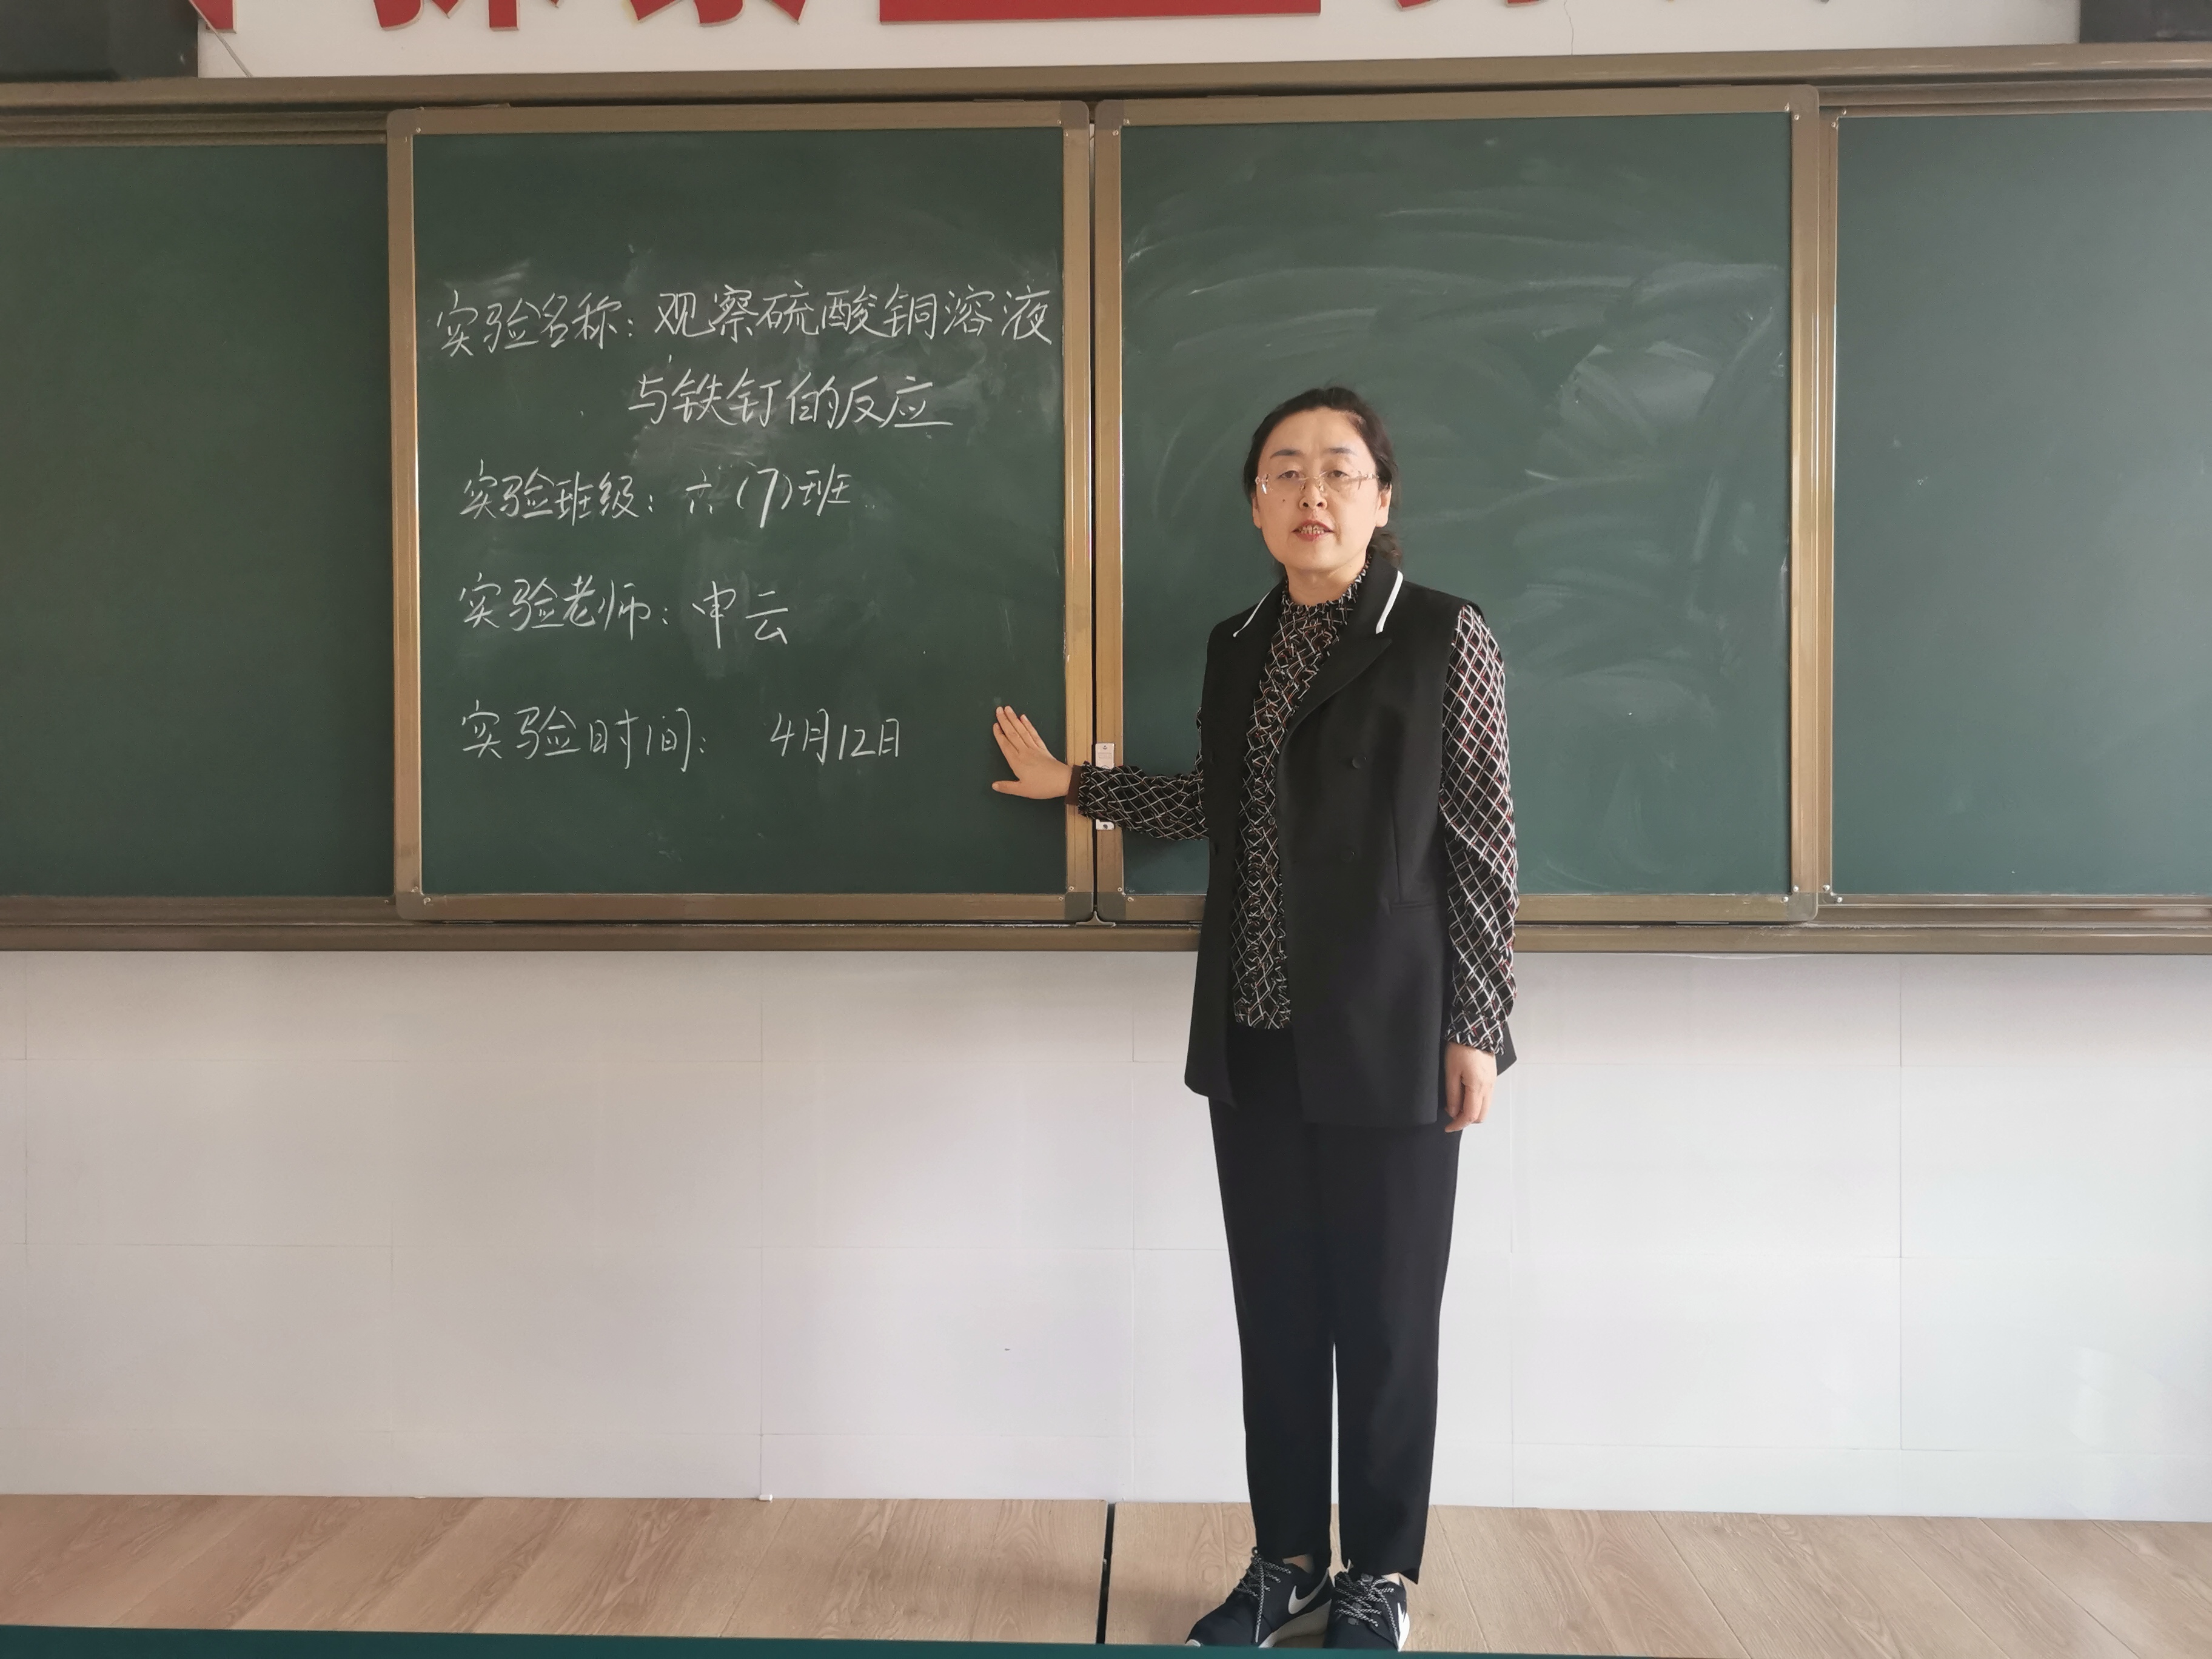 实验名称：观察硫酸铜溶液
与铁钉的反应
实验班级：六（7）班
实验老师：申云
实验时间：4月12日